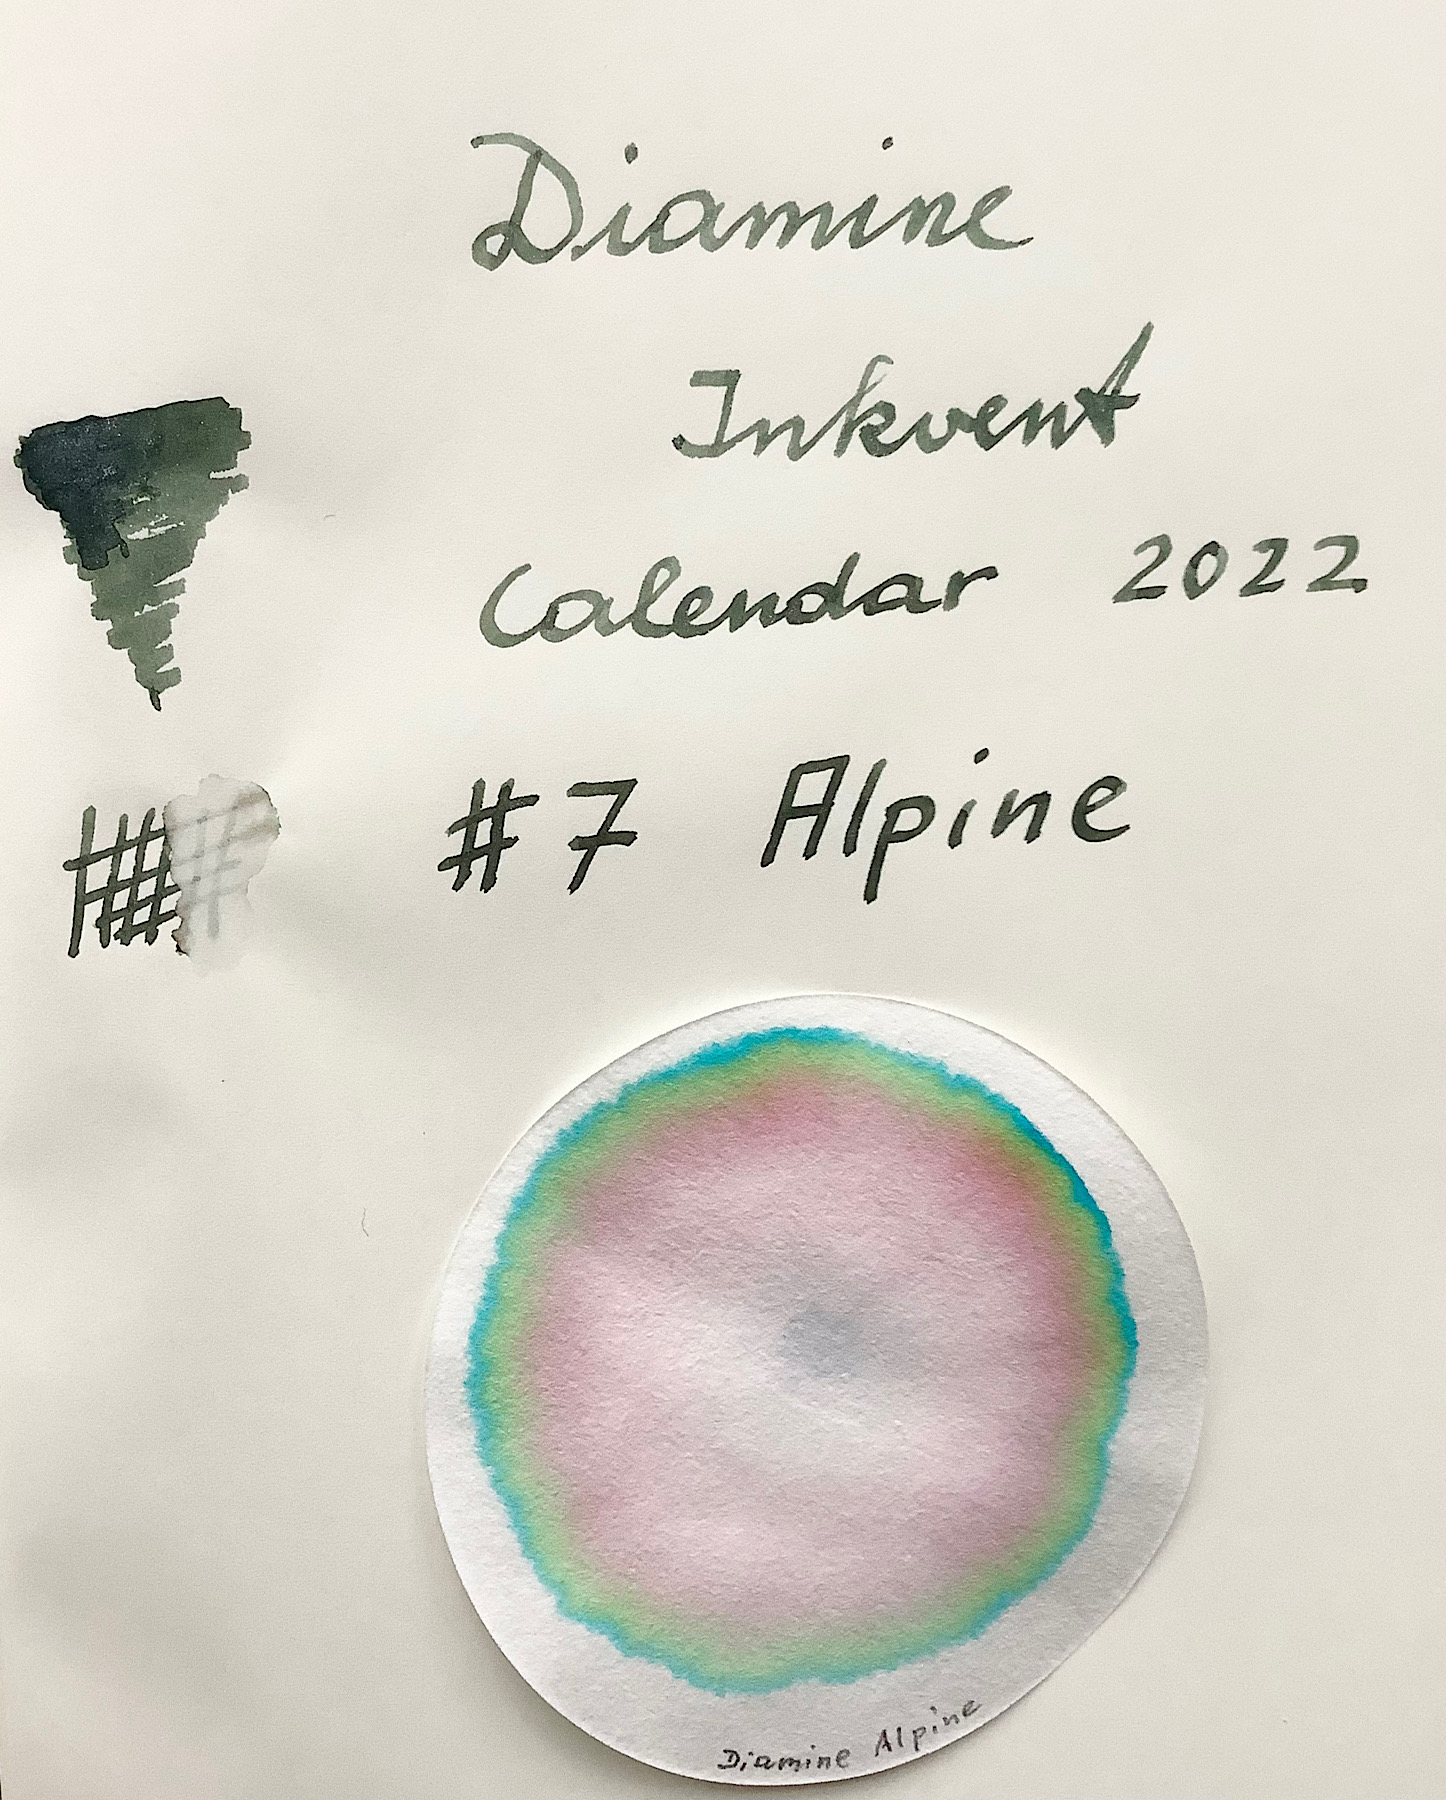 Diamine
Inkvent
Calendar 2022
#7 Alpine
Diamine Alpine